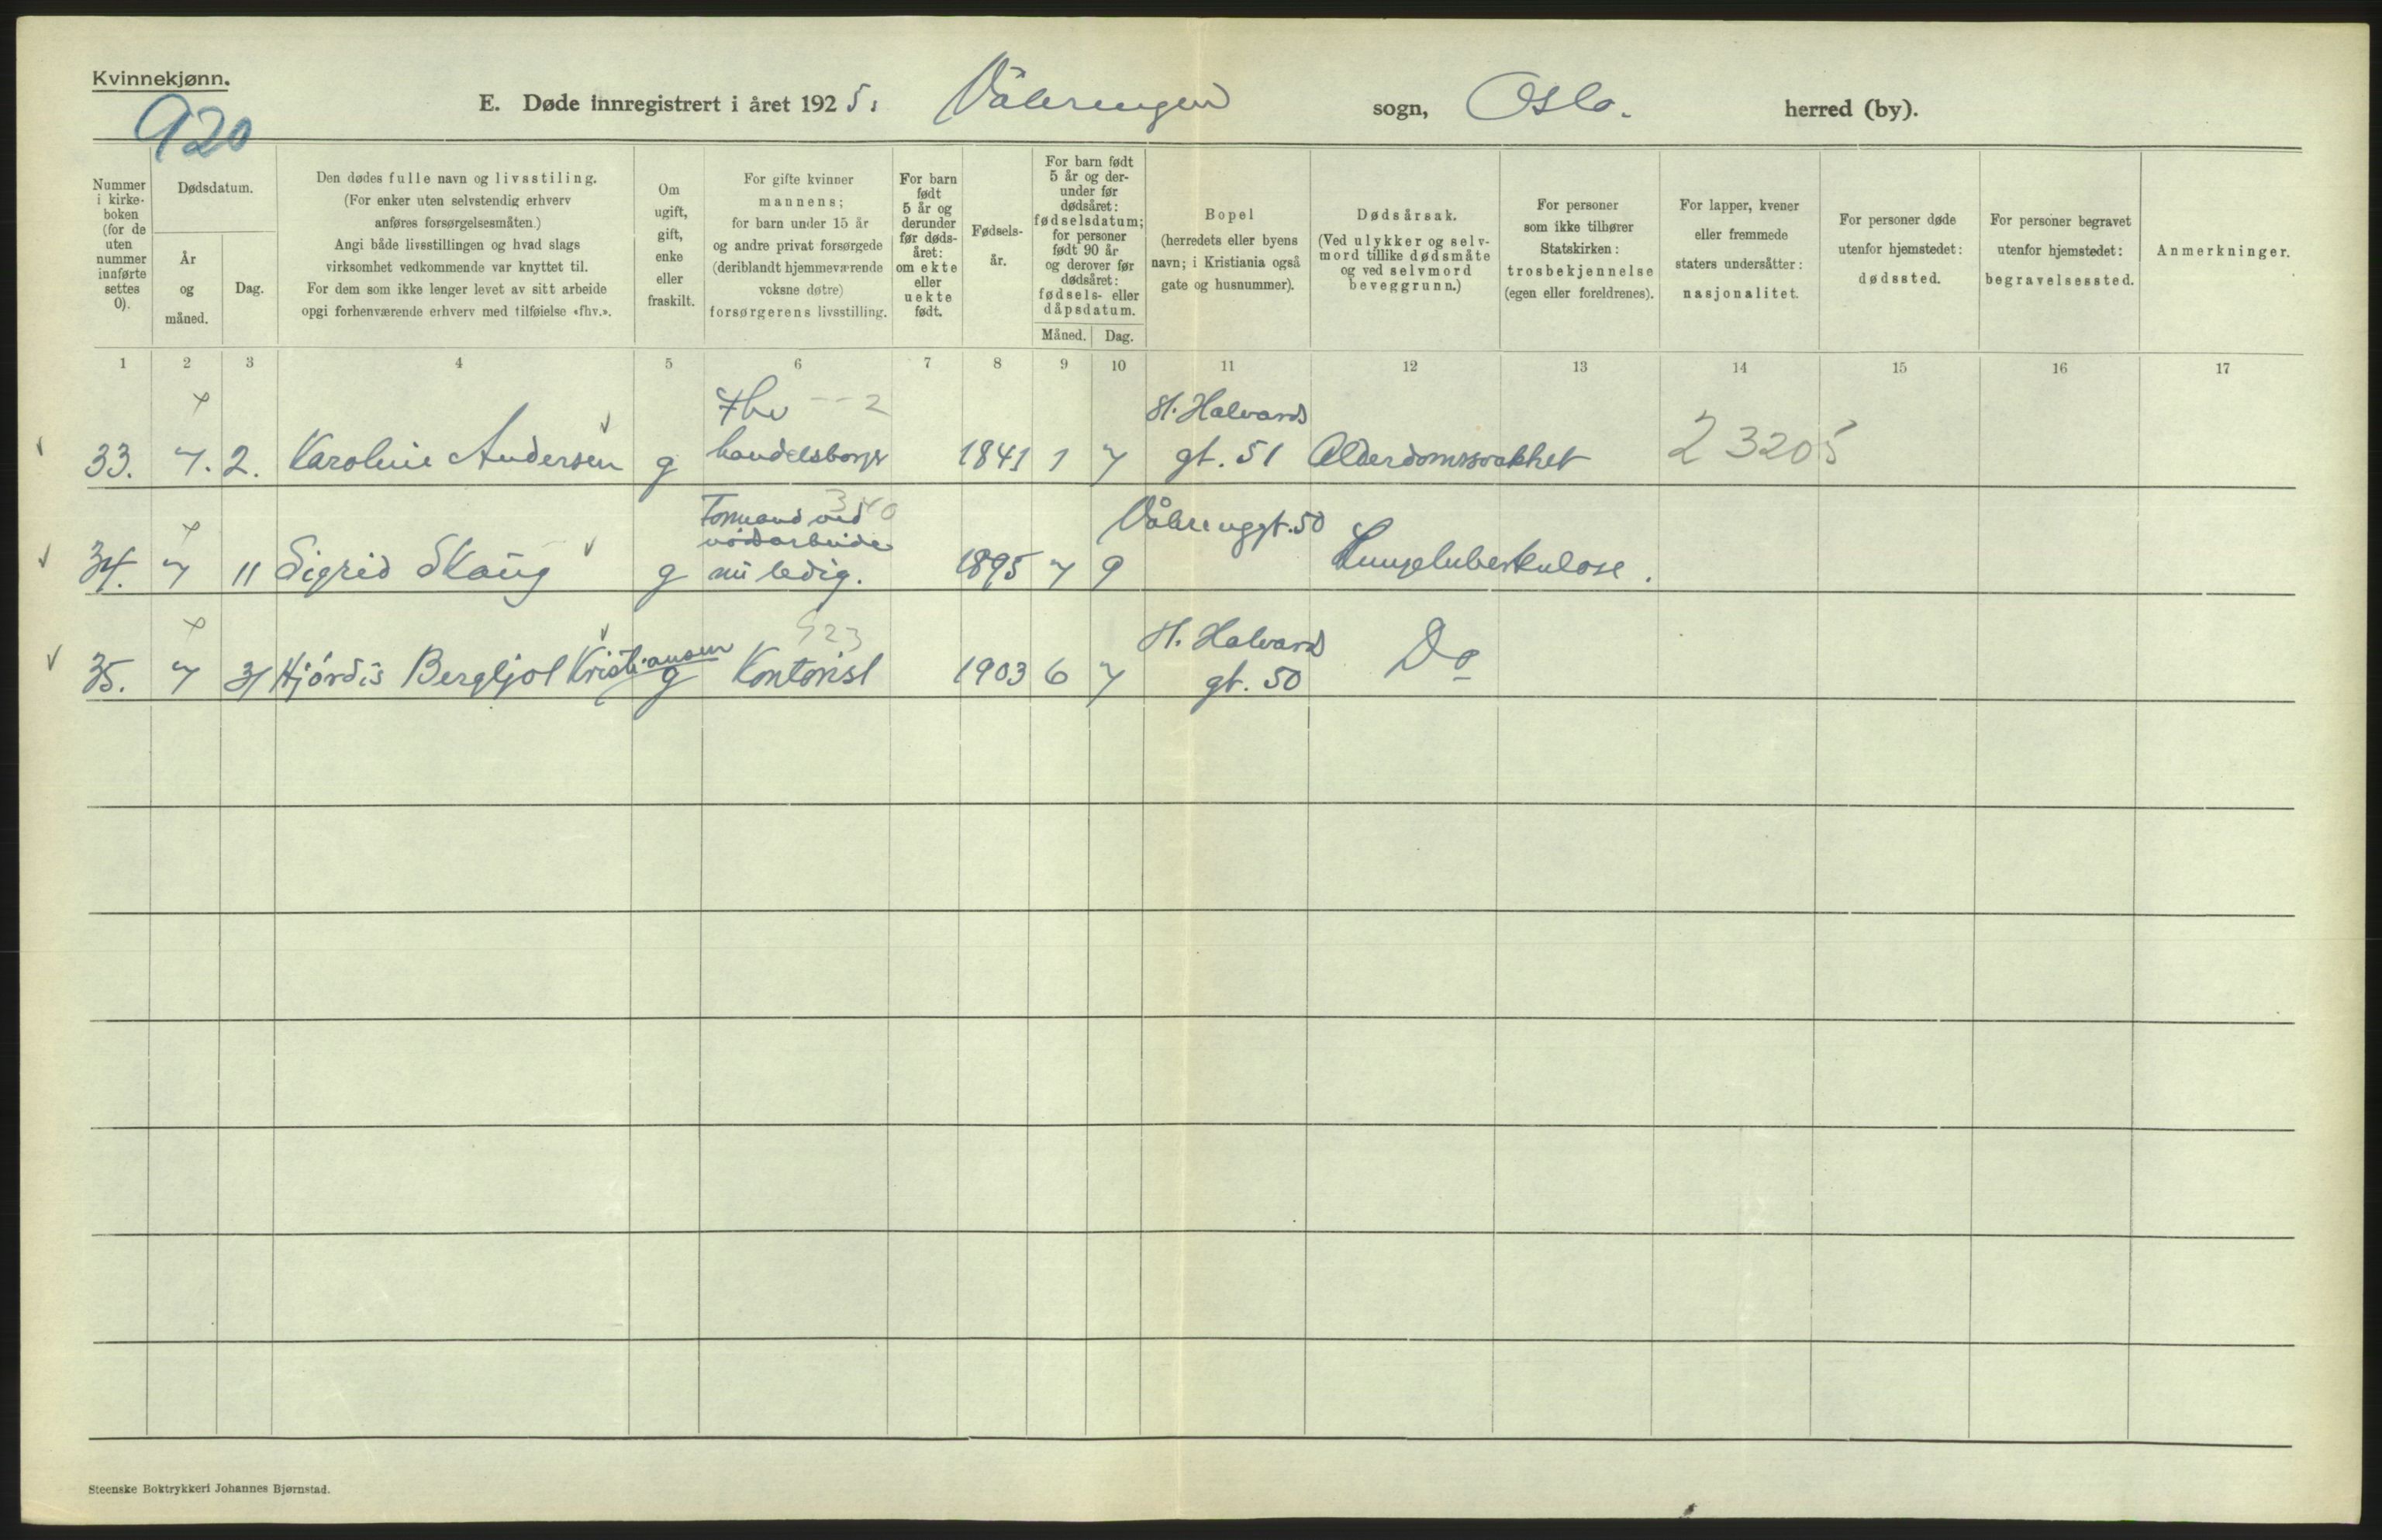 Kvinnekjønn.
920
E. Døde innregistrert i året 1925. Vålerengen sogn, Oslo. herred (by).
Nummer
i kirke-
boken
(for de
uten
nummer
innførte
settes
0).
Dødsdatum.
År
og
måned.
Dag.
Den dødes fulle navn og livsstiling.
(For enker uten selvstendig erhverv
anføres forsørgelsesmåten.)
Angi både livsstillingen og hvad slags
virksomhet vedkommende var knyttet til.
For dem som ikke lenger levet av sitt arbeide
opgi forhenværende erhverv med tilføielse «fhv.».
Om
ugift,
gift,
enke
eller
fraskilt.
For gifte kvinner
mannens;
for barn under 15 år
og andre privat forsørgede
(deriblandt hjemmeværende
voksne døtre)
forsørgerens livsstilling.
For barn
født
5 år og
derunder
før døds-
året:
om ekte
eller
uekte
født.
Fødsels-
år.
For barn født
5 år og der-
under før
dødsåret:
fødselsdatum;
for personer
født 90 år
og derover før
dødsåret:
fødsels- eller
dåpsdatum.
Måned. Dag.
Bopel
(herredets eller byens
navn; i Kristiania også
gate og husnummer).
Dødsårsak.
(Ved ulykker og selv-
mord tillike dødsmåte
og ved selvmord
beveggrunn.)
For personer
som ikke tilhører
Statskirken:
trosbekjennelse
(egen eller foreldrenes).
For lapper, kvener
eller fremmede
staters undersåtter:
nasjonalitet.
For personer døde
utenfor hjemstedet:
dødssted.
For personer begravet
utenfor hjemstedet:
begravelsessted.
Anmerkninger.
1 2 3 4 5 6 7 8 9 10 11 12 13 14 15 16 17
Fhv -- 2
St. Halvards
33. 7. 2. Karoline Andersen g handelsborger 1841 1 7 gt. 51 Alderdomssvakhet 23205
340
Formand ved
Vålerenggt. 50
nødsarbeide
34. 7 11 Sigrid Skaug g nu ledig. 1895 7 9 Lungetuberkulose.
923
St. Halvards
35. 7 31 Hjørdis Bergljot Kristiansen g Kontorist 1903 6 7 gt. 50 Do
Steenske Boktrykkeri Johannes Bjørnstad.